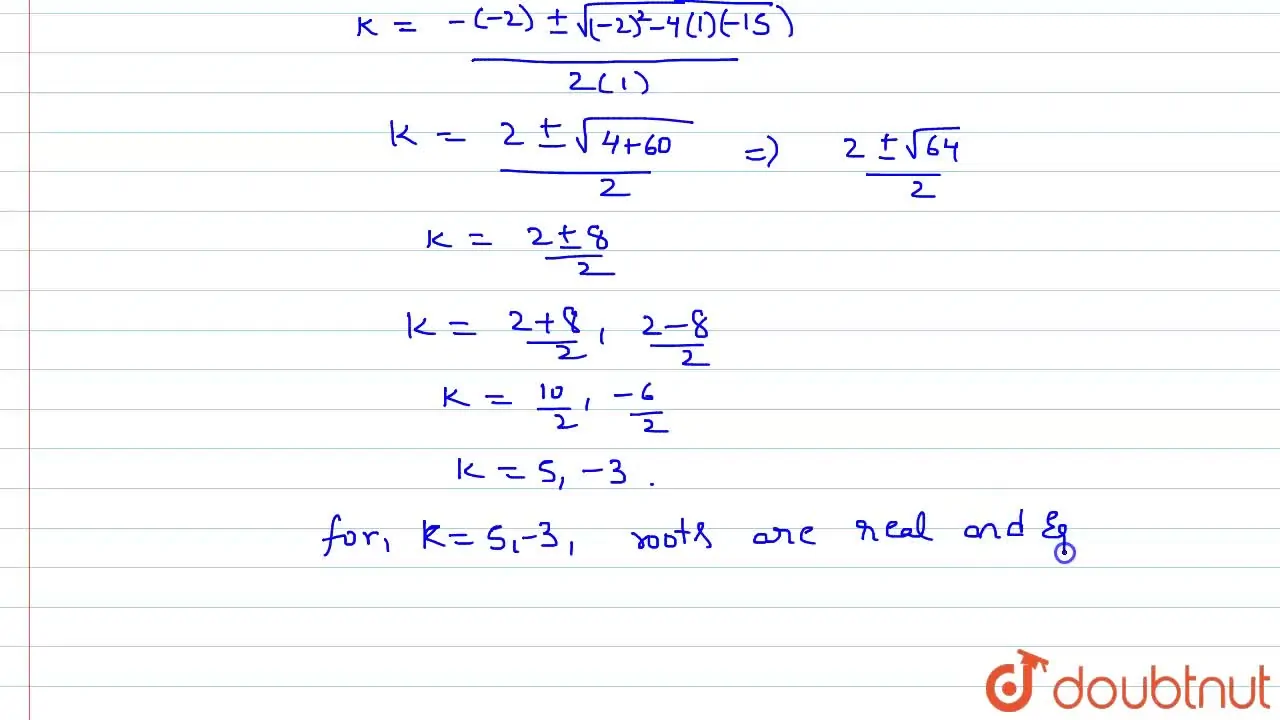 K = -(-2) ± √(-2)²-4(1)(-15)
2(1)
K = 2 ± √4+60 / 2 => 2 ± √64 / 2
K = 2 ± 8 / 2
K = 2+8 / 2 , 2-8 / 2
K = 10/2 , -6/2
K = 5, -3 .
for, K = 5,-3, roots are real and Eq
doubtnut